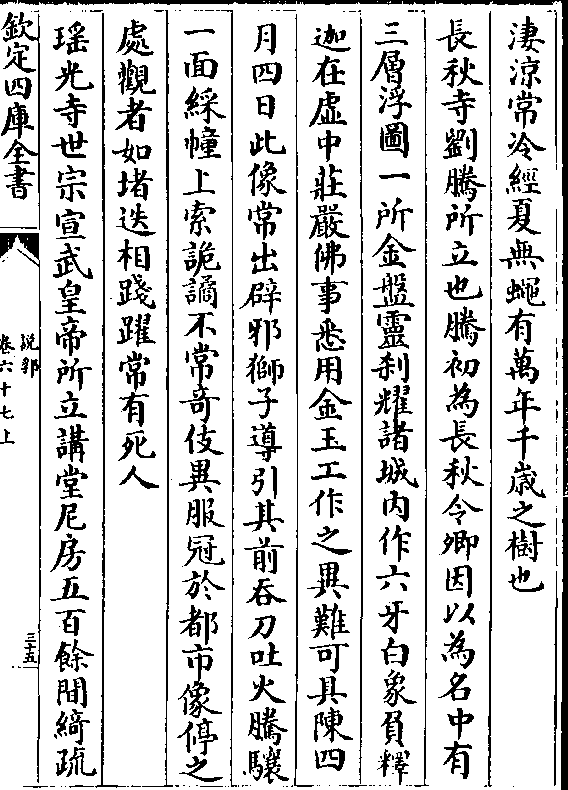 淒涼常冷經夏無蠅有萬年千歲之樹也
長秋寺劉騰所立也騰初為長秋令卿因以為名中有
三層浮圖一所金盤靈刹耀諸城内作六牙白象負釋
迦在虛中莊嚴佛事悉用金玉工作之異難可具陳四
月四日此像常出辟邪獅子導引其前吞刀吐火騰驤
一面綵幢上索詭譎不常奇伎異服冠於都市像停之
處觀者如堵迭相踐躍常有死人
瑶光寺世宗宣武皇帝所立講堂尼房五百餘間綺疏
欽定四庫全書
說郛
卷六十七上
三十五